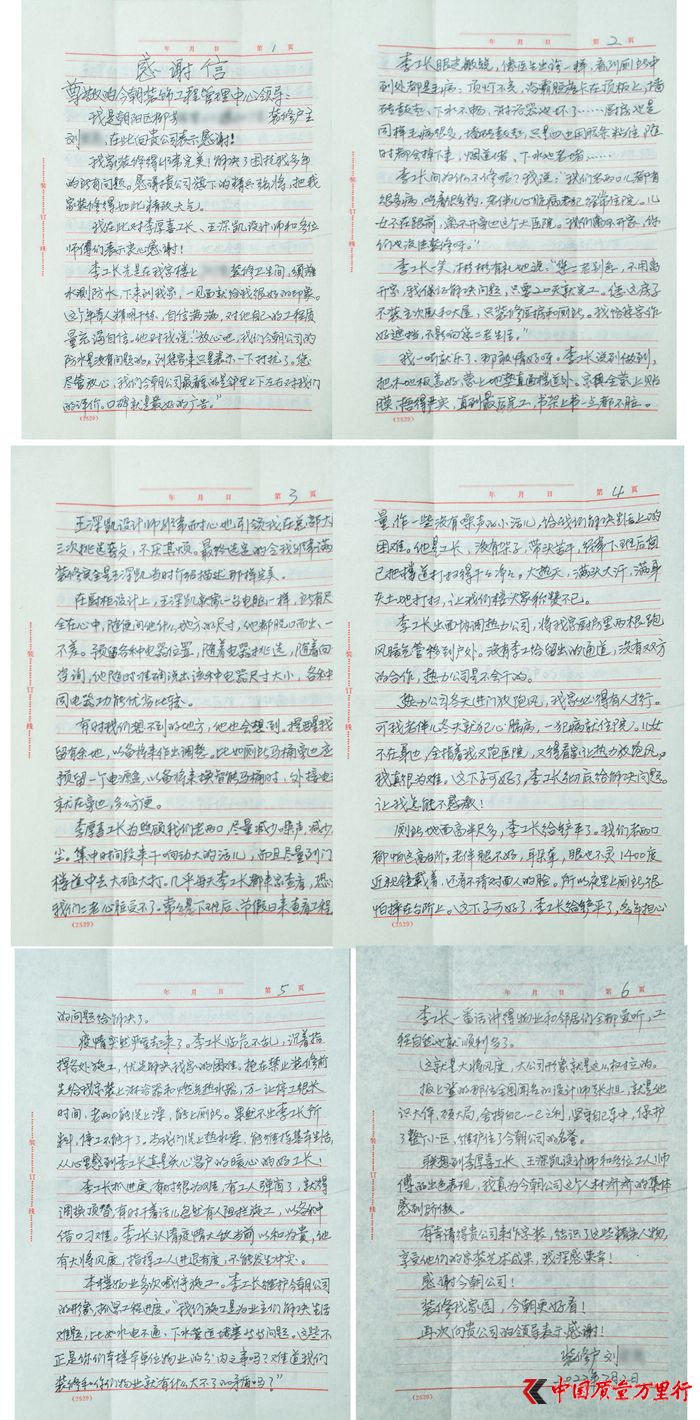 年 月 日 第 1 页
感谢信
尊敬的今朝装饰工程管理中心领导:
我是朝阳区柳芳 装修户主
刘 ,在此向贵公司表示感谢!
我家装修得非常完美!解决了困扰我多年
的所有问题。感谢得贵公司旗下的精兵强将,把我
家装修得如此精致大气。
我在此对李厚喜工长、王深凯设计师和各位
师傅们表示衷心感谢!
李工长先是在我家楼上 装修卫生间,须放
水测防水,下来到我家,一见面就给我很好的印象。
这个年青人精明干练,自信满满,对他自己的工程质
量充满自信。他对我说:“放心吧,我们今朝公司的
防水是没有问题的。到您家来只是表示一下打扰了。您
尽管放心,我们今朝公司最看重的是邻里上下左右对我们
的评价。口碑就是最好的广告。”
(2529)
装订线
年 月 日 第 2 页
李工长眼光敏锐,像医生出诊一样,看到厕所中
到处都是毛病。顶灯不亮,浴霸脏病卡在顶板上,墙
砖鼓起,下水不畅,淋浴器也坏了……厨房也是
同样毛病很多,墙砖鼓起,只是四边用胶条粘住,随
时都会掉下来,烟道堵、下水也老堵……
李工长问为何不修呢?我说:“我们老两口儿都有
很多病,吃着很多药,老伴儿心脏病老犯经常住院。儿
女不在跟前,离不开旁边这个大医院。我们离不开家,你
们也没法装修呀。”
李工长一笑,彬彬有礼地说:“您二老别急,不用离
开家,我保证解决问题,只要20天就完工。您这房子
不装主次卧和大屋,只装修厨房和厕所。我给您家作
好遮挡,不影响您二老生活。”
我一听就乐了,那敢情好呀。李工长说到做到,
把木地板盖好,蒙上地垫直通楼道外。家俱全蒙上贴
膜,捂得严实,直到最后完工,书架上书一点都不脏。
年 月 日 第 3 页
王深凯设计师非常耐心地引领我在总部大
三次挑选套头,不厌其烦。最终选定的令我非常满
装修完全是王深凯当时介绍描述那样完美。
在厨柜设计上,王深凯就像一台电脑一样,所有尺
全在心中,随便问他什么地方的尺寸,他都脱口而出、一
不差。预留各种电器位置,随着电器挑选,随着向
咨询,他随时准确说出该种电器尺寸大小,各种不
同电器功能优劣比较。
有时我们想不到的地方,他也会想到。提醒我
留有余地,以备将来作出调整。比如厕所马桶旁也应
预留一个电源盒,以备将来换智能马桶时,外接电
就在旁边,多么方便。
李厚喜工长为照顾我们老两口,尽量减少噪声,减少
尘。集中时间段来干响动大的活儿,而且尽量到门
楼道中去大砸大打。几乎每天李工长都来家查看,恐
我们二老心脏受不了。常常是下班后、节假日来查看工程
(2529)
装订线
年 月 日 第 4 页
量,作一些没有噪声的小活儿,给我们解决生活上的
困难。他是工长,没有架子,带头苦干,经常下班后自
己把楼道打扫得干干净净。大热天,满头大汗,满身
灰土地打扫,让我们楼大家称赞不已。
李工长出面协调热力公司,将我家厨房里两根跑
风暗气管移到户外。没有李工给留出的通道,没有双方
的合作,热力公司是不会干的。
热力公司冬天进门放跑风,我家必得有人才行。
可我老伴儿冬天就犯心脏病,一犯病就住院了。儿女
不在身边,全指着我又跑医院,又得看家让热力放跑风。
我真很为难。这下子可好了,李工长彻底给解决问题。
让我怎能不感激!
厕所地面高半尺多,李工长给铲平了。我们老两口
都怕这高台阶。老伴腿不好,耳朵聋,眼也不灵1400度
近视镜戴着,还看不清对面人的脸。所以夜里上厕所很
怕摔在台阶上。这下子可好了,李工长给铲平了,多年担心
(2529)
年 月 日 第 5 页
的问题给解决了。
疫情突然严重起来了。李工长临危不乱,沉着指
挥各处施工,优先解决我家的困难。抢在禁止装修前
先给我家装上淋浴器和燃气热水器,万一让停工很长
时间,老两口能洗上澡,能上厕所。果然不出李工长所
料,停工不能干了。老我们洗上热水澡,能维持基本生活,
从心里感到李工长真是关心客户的暖心的好工长!
李工长抓进度,有时很为难,有工人弹窗了,就得
调换顶替,有时干着活儿忽然有人阻拦施工,以各种
借口刁难。李工长认清疫情大敌当前以和为贵,他
有大将风度,指挥工人进退有度,不能发生冲突。
本楼物业多次喊停施工。李工长维护今朝公司
的形像,抓紧工程进度。“我们施工是为业主们解决生活
难题,比如水电不通、下水管道堵塞等等问题,这些不
正是你们本楼本单位物业的分内之事吗?难道我们
装修和你们物业就有什么大不了的矛盾吗?”
(2529)
装订线
年 月 日 第 6 页
李工长一番话讲得物业和邻居们全都爱听,工
程自然也就顺利多了。
这就是大将风度,大公司形像就是这么树立的。
报上登的那位全国闻名的设计师张旭,就是他
识大体,顾大局,舍掉自己一己之利,坚守红本中,保护
了整个小区,维护住了今朝公司的名誉。
联想到李厚喜工长、王深凯设计师和各位工人师
傅的出色表现,我真为今朝公司这个人材济济的集体
感到骄傲。
有幸请得贵公司来作家装,结识了这些精英人物,
享受他们的家装艺术成果,我深感荣幸!
感谢今朝公司!
装修我家园,今朝更好看!
再次向贵公司的领导表示感谢!
装修户 刘
2022年7月2日
中国质量万里行